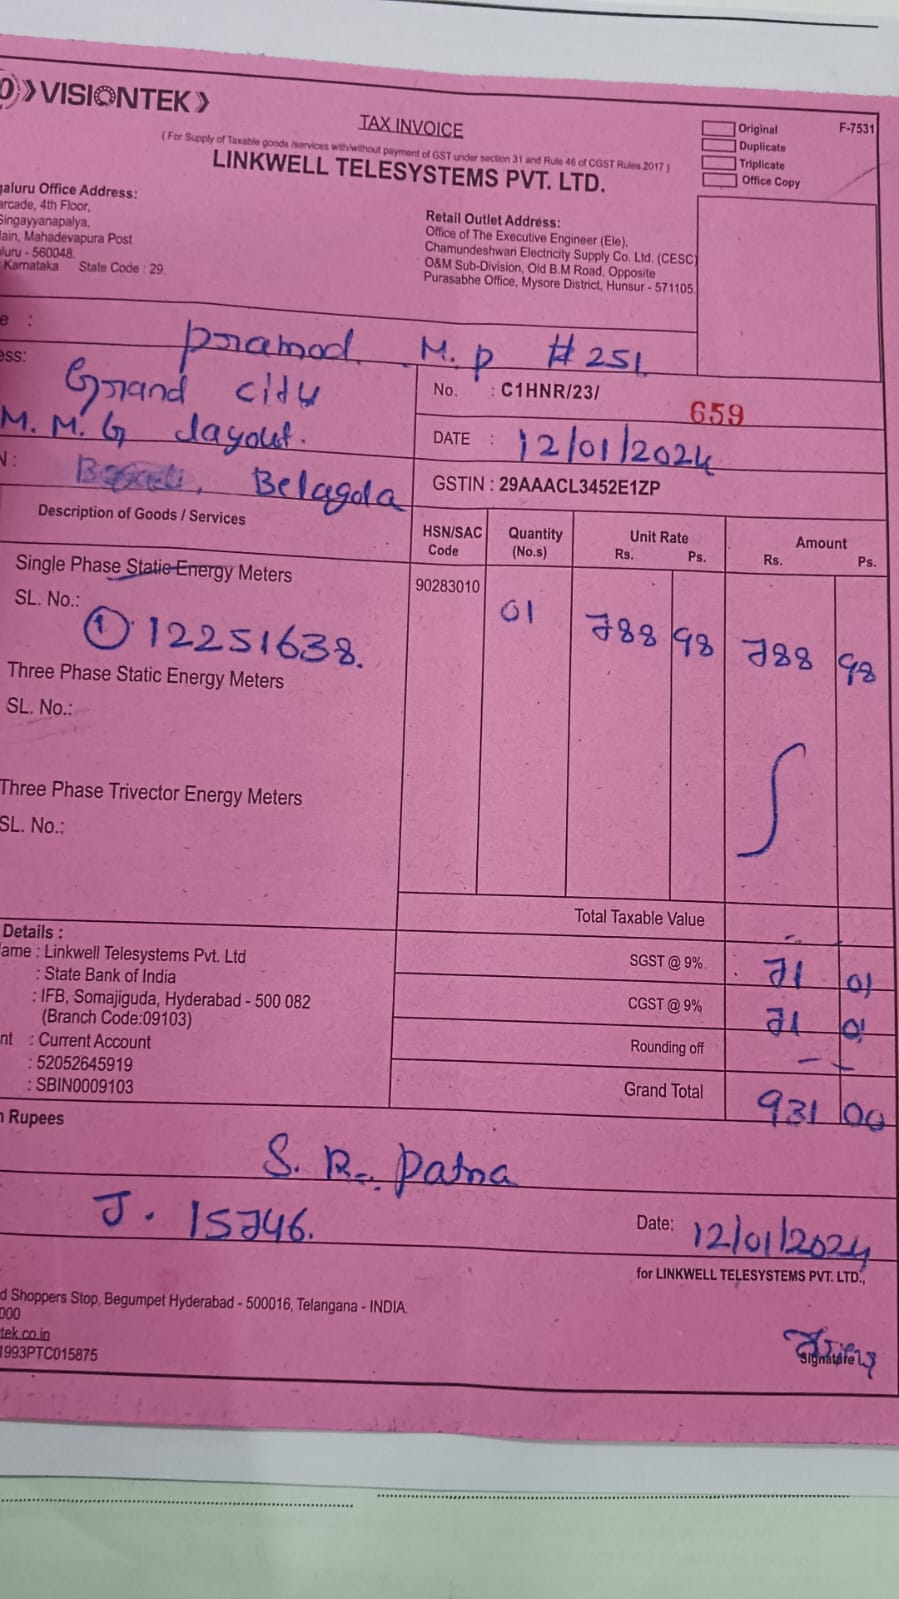 VISIONTEK
TAX INVOICE
( For Supply of Taxable goods /services with/without payment of GST under section 31 and Rule 46 of CGST Rules.2017 )
LINKWELL TELESYSTEMS PVT. LTD.
Original
Duplicate
Triplicate
Office Copy
F-7531
galuru Office Address:
arcade, 4th Floor,
Singayyanapalya,
Main, Mahadevapura Post
luru - 560048.
Karnataka State Code : 29.
Retail Outlet Address:
Office of The Executive Engineer (Ele),
Chamundeshwari Electricity Supply Co. Ltd. (CESC)
O&M Sub-Division, Old B.M Road, Opposite
Purasabhe Office, Mysore District, Hunsur - 571105.
e : Pramod. M.P #251
ess: Grand city
M.M.G layout.
N: Belagola
No. : C1HNR/23/ 659
DATE : 12/01/2024
GSTIN : 29AAACL3452E1ZP
Description of Goods / Services HSN/SAC Code Quantity (No.s) Unit Rate Rs. Ps. Amount Rs. Ps.
Single Phase Static Energy Meters 90283010 01 788 98 788 98
SL. No.:
① 12251638.
Three Phase Static Energy Meters
SL. No.:
Three Phase Trivector Energy Meters
SL. No.:
Total Taxable Value
SGST @ 9% 71 01
CGST @ 9% 71 01
Rounding off - -
Grand Total 931 00
Details :
ame : Linkwell Telesystems Pvt. Ltd
: State Bank of India
: IFB, Somajiguda, Hyderabad - 500 082
(Branch Code:09103)
nt : Current Account
: 52052645919
: SBIN0009103
n Rupees
S. R. Patna
J. 15746.
Date: 12/01/2024
for LINKWELL TELESYSTEMS PVT. LTD.,
d Shoppers Stop, Begumpet Hyderabad - 500016, Telangana - INDIA.
000
tek.co.in
1993PTC015875
Signature